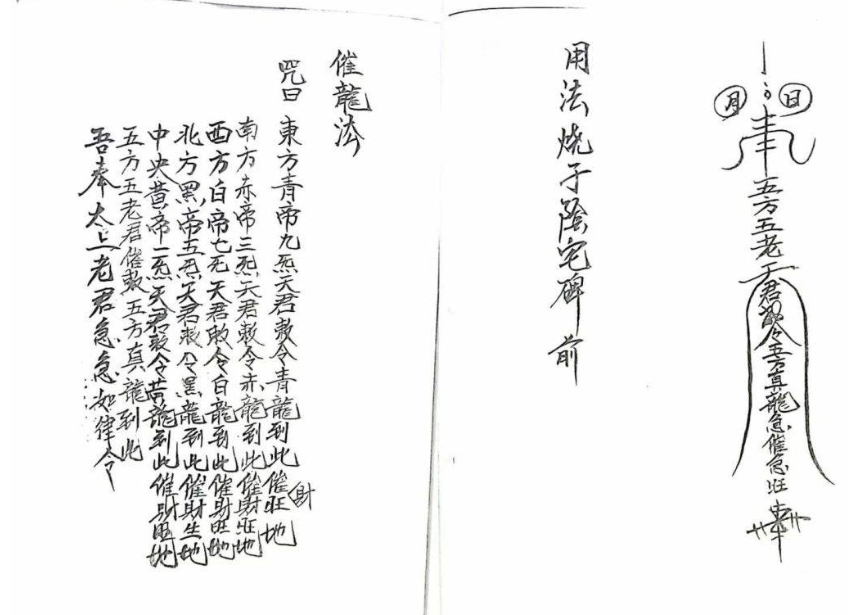 日
月
奉
五方五老天君敕令五方真龍急催急旺
用法燒于陰宅碑前
催龍法
咒曰
東方青帝九炁天君敕令青龍到此催財旺地
南方赤帝三炁天君敕令赤龍到此催財旺地
西方白帝七炁天君敕令白龍到此催財旺地
北方黑帝五炁天君敕令黑龍到此催財生地
中央黃帝一炁天君敕令黃龍到此催財旺地
五方五老君催敕五方真龍到此
吾奉太上老君急急如律令